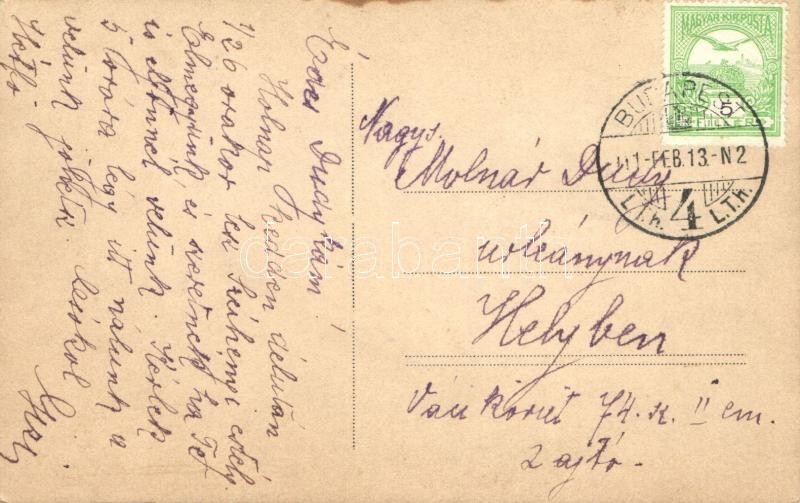 Édes Ducikám!
Holnap kedden délután
1/2 6 órakor lesz
Elmegyünk és szeretnék ha Te
is jönnél velünk. Kérlek
5 órára légy itt nálunk s
velünk jöhetsz. Csókol
MAGYAR KIR. POSTA
5
FILLÉR
BUDAPEST
911-FEB.13.-N2
L.T.h. 4 L.T.h.
Nagys.
Molnár Ducy
urleánynak
Helyben
Váci körút 74. sz. II em.
2 ajtó.
darabanth